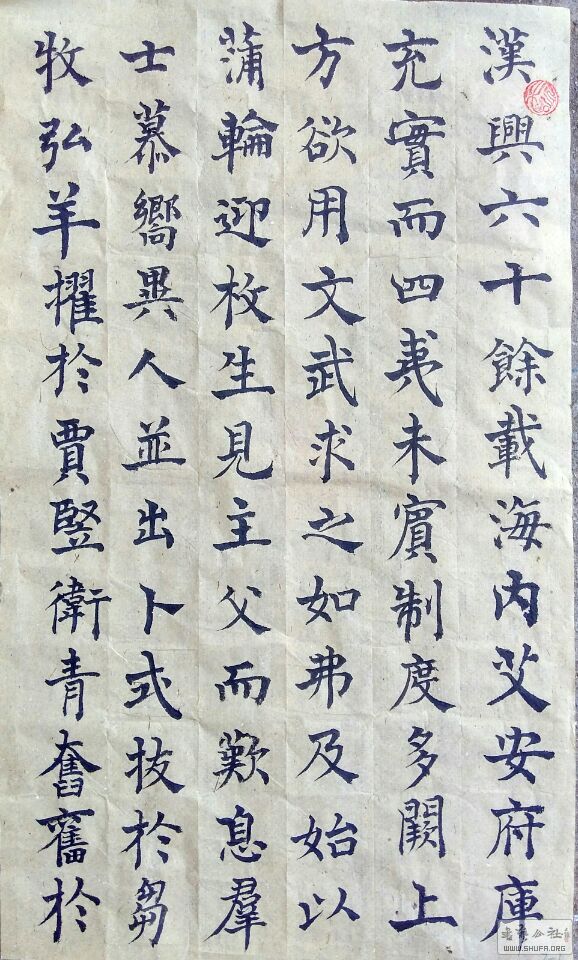 漢興六十餘載海内艾安府庫
充實而四夷未賓制度多闕上
方欲用文武求之如弗及始以
蒲輪迎枚生見主父而歎息羣
士慕嚮異人並出卜式拔於芻
牧弘羊擢於賈竪衛青奮奮於
書法公社
WWW.SHUFA.ORG